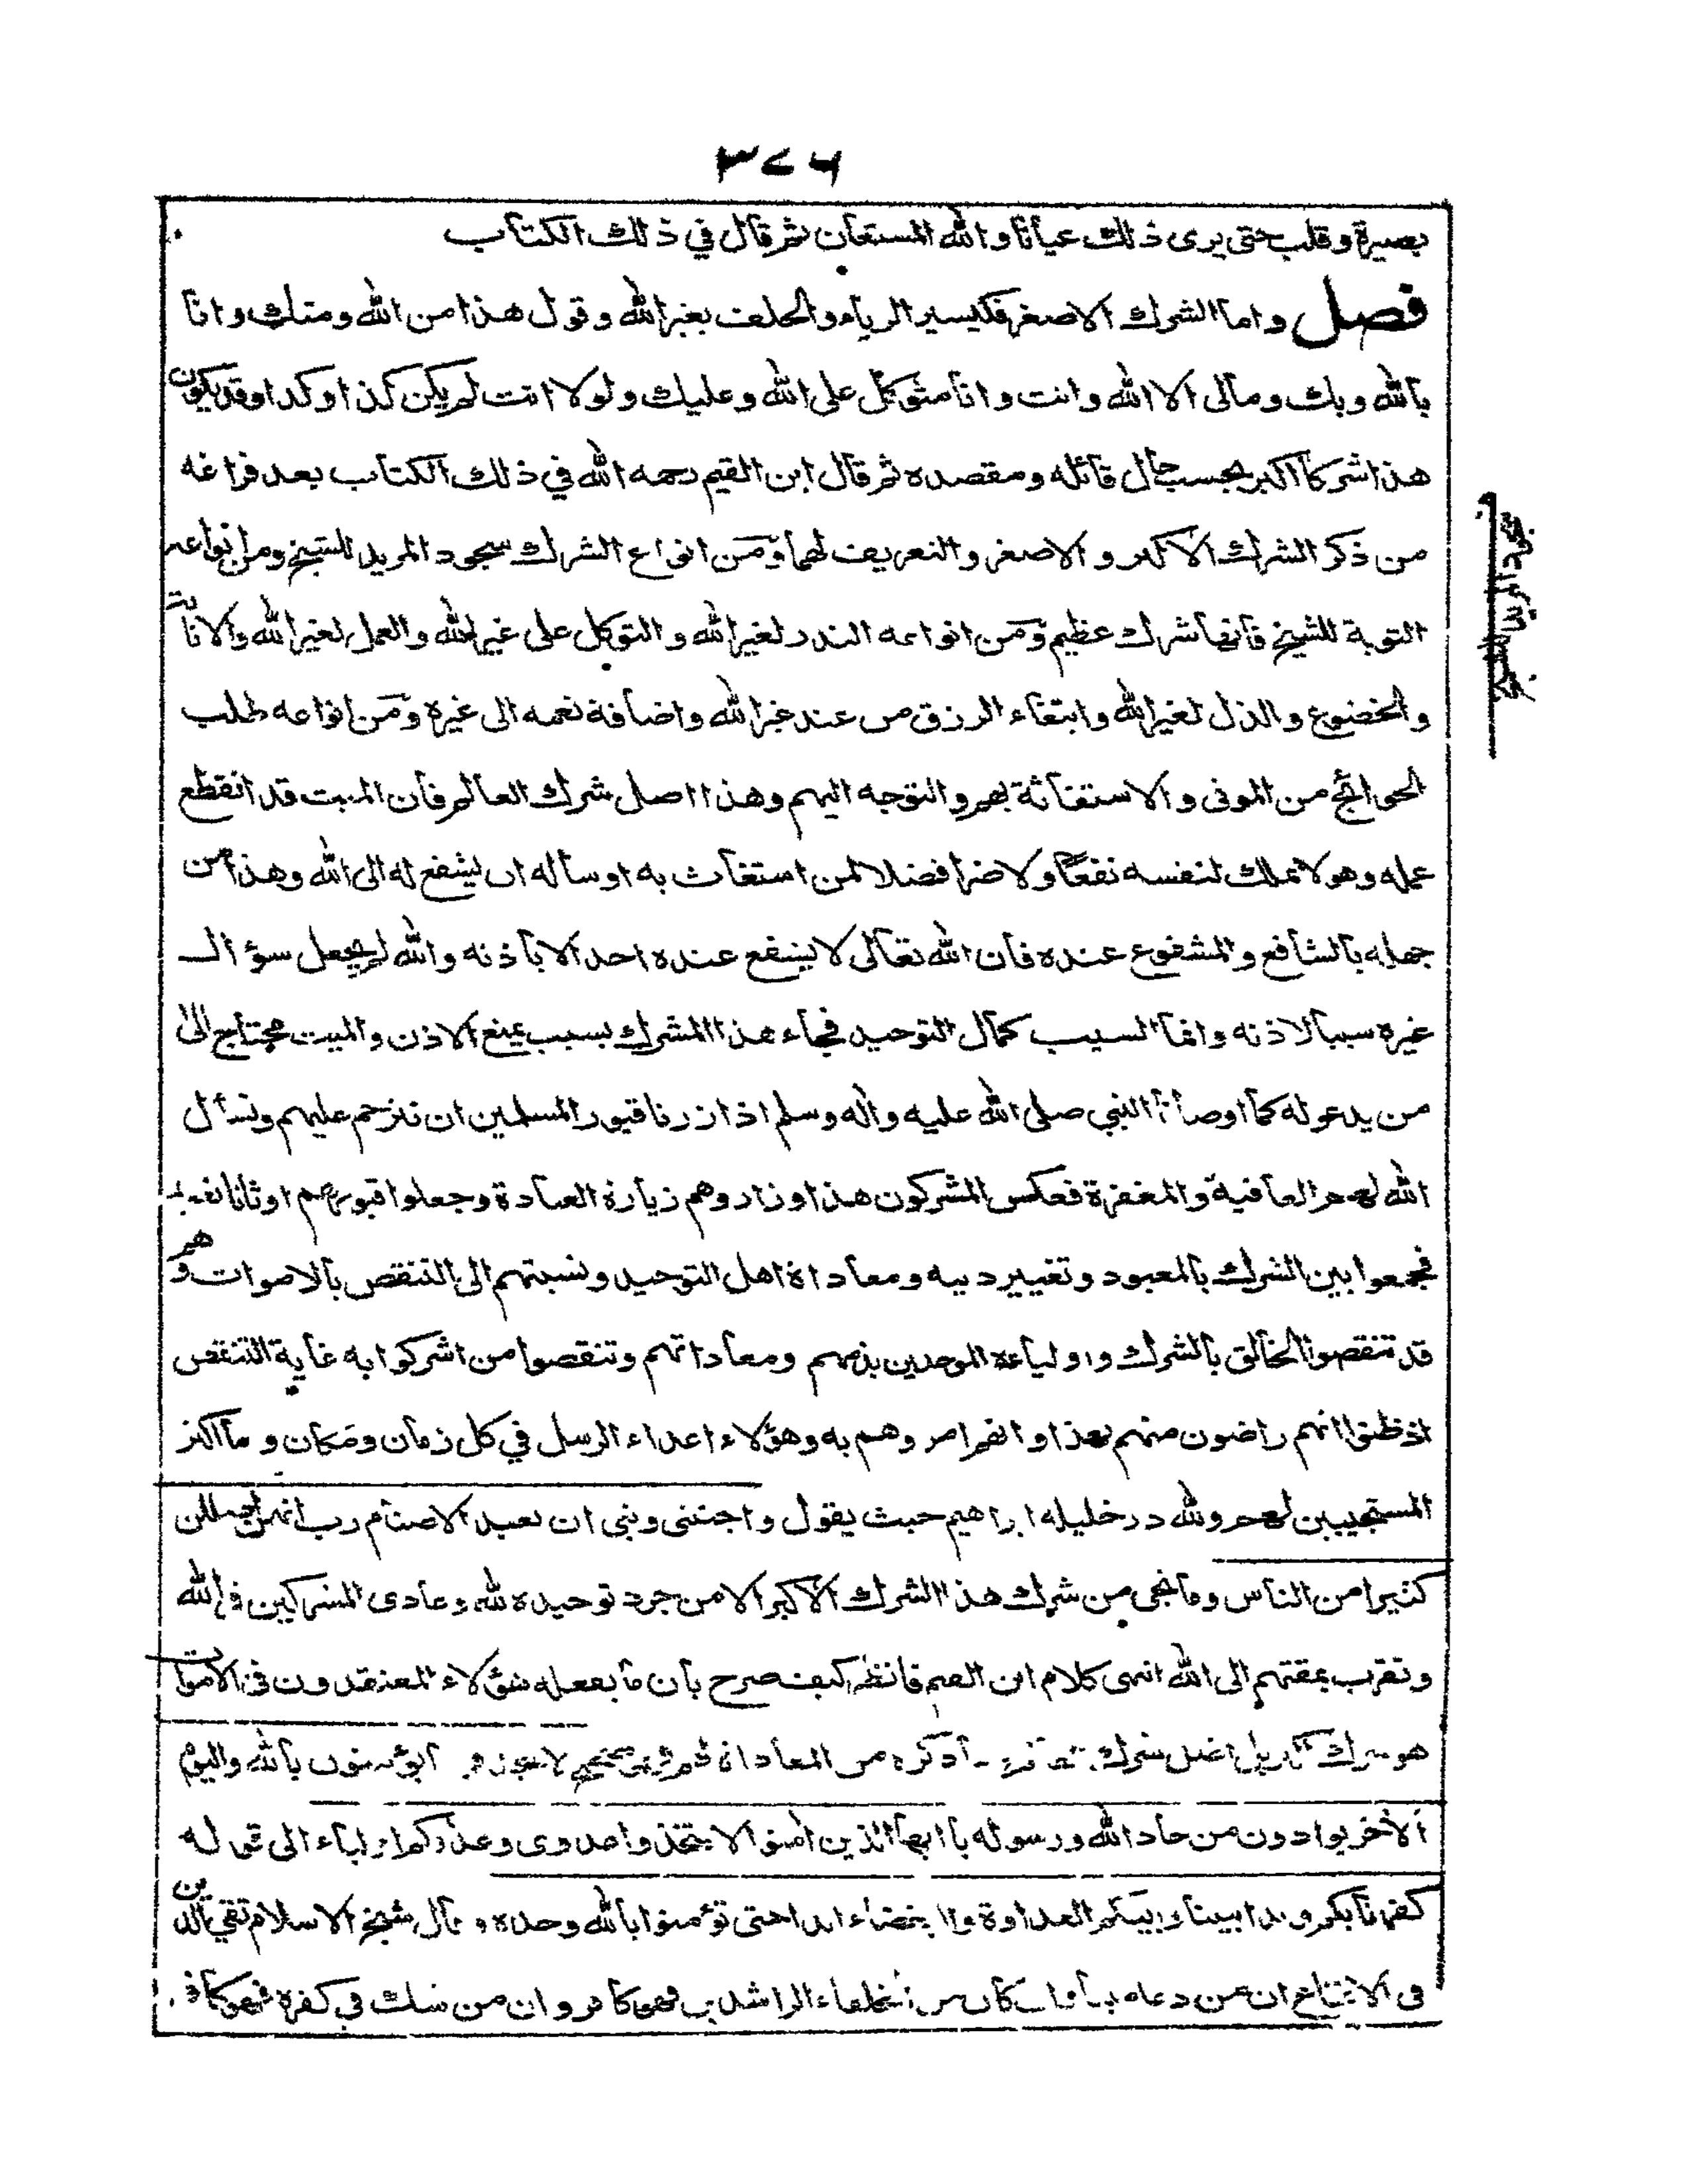 ٣٧٦
بصيرة وقلب حتى يرى ذلك عيانا والله المستعان ثم قال في ذلك الكتاب
فصل واما الشرك الاصغر فكيسير الرياء والحلف بغير الله وقول هذا من الله ومنك وانا
بالله وبك ومالى الا الله وانت وانا متوكل على الله وعليك ولولا انت لم يكن كذا وكذا وقد يكون
هذا شركا اكبر بحسب حال قائله ومقصده ثم قال ابن القيم رحمه الله في ذلك الكتاب بعد فراغه
من ذكر الشرك الاكبر والاصغر والتعريف لهما ومن انواع الشرك سجود المريد للشيخ ومن انواعه
التوبة للشيخ فانها شرك عظيم ومن انواعه النذر لغير الله والتوكل على غير الله والعمل لغير الله والانابة
والخضوع والذل لغير الله وابتغاء الرزق من عند غير الله واضافة نعمه الى غيره ومن انواعه طلب
الحوائج من الموتى والاستغاثة بهم والتوجه اليهم وهذا اصل شرك العالم فان الميت قد انقطع
عمله وهو لا يملك لنفسه نفعا ولا ضرا فضلا لمن استغاث به او سأله ان يشفع له الى الله وهذا من
جهله بالشافع والمشفوع عنده فان الله تعالى لا يشفع عنده احد الا باذنه والله لم يجعل سؤال
غيره سببا لاذنه وانما السبب كمال التوحيد فجاء هذا المشرك بسبب يمنع الاذن والميت محتاج الى
من يدعو له كما اوصانا النبي صلى الله عليه واله وسلم اذا زرنا قبور المسلمين ان نترحم عليهم ونسأل
الله لهم العافية والمغفرة فعكس المشركون هذا وزاروهم زيارة العبادة وجعلوا قبورهم اوثانا تعبد
فجمعوا بين الشرك بالمعبود وتغيير دينه ومعاداة اهل التوحيد ونسبتهم الى التنقص بالاموات وهم
قد تنقصوا الخالق بالشرك واولياءه الموحدين بذمهم ومعاداتهم وتنقصوا من اشركوا به غاية التنقص
اذ ظنوا انهم راضون منهم بهذا وانهم امروهم به وهؤلاء اعداء الرسل في كل زمان ومكان وما اكثر
المستجيبين لهم ولله در خليله ابراهيم حيث يقول واجنبنى وبنى ان نعبد الاصنام رب انهن اضللن
كثيرا من الناس وما نجى من شرك هذا الشرك الاكبر الا من جرد توحيده لله وعادى المشركين فى الله
وتقرب بمقتهم الى الله انتهى كلام ابن القيم فانظر كيف صرح بان ما يفعله هؤلاء المعتقدون فى الاموات
هو شرك اكبر بل اصل شرك ذكره من المعاداة لهم صحيح لا تجد قوما يؤمنون بالله واليوم
الآخر يوادون من حاد الله ورسوله يا ايها الذين آمنوا لا تتخذوا عدوى وعدوكم اولياء الى قوله
كفرنا بكم وبدا بيننا وبينكم العداوة والبغضاء ابدا حتى تؤمنوا بالله وحده وقال شيخ الاسلام تقي الدين
فى الاقناع ان من دعا ميتا وان كان من الخلفاء الراشدين فهو كافر وان من شك في كفره فهو كافر